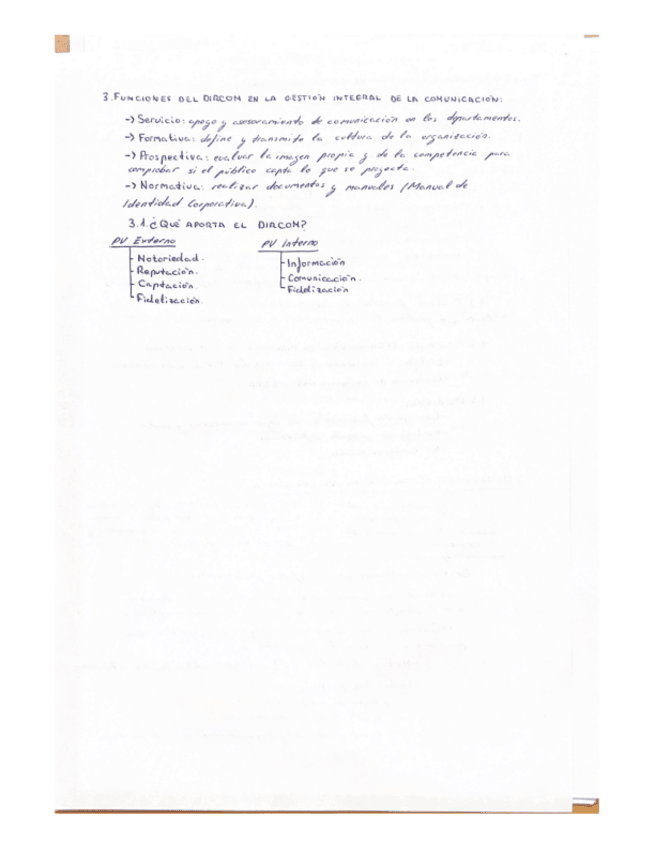 3. FUNCIONES DEL DIRCOM EN LA GESTIÓN INTEGRAL DE LA COMUNICACIÓN:
-> Servicio: apoyo y asesoramiento de comunicación en los departamentos.
-> Formativa: define y transmite la cultura de la organización.
-> Prospectiva: evaluar la imagen propia y de la competencia para
comprobar si el público capta lo que se proyecta.
-> Normativa: realizar documentos y manuales (Manual de
Identidad Corporativa).
3.1. ¿QUÉ APORTA EL DIRCOM?
PV Externo
Notoriedad.
Reputación.
Captación.
Fidelización.
PV Interno
Información
Comunicación.
Fidelización